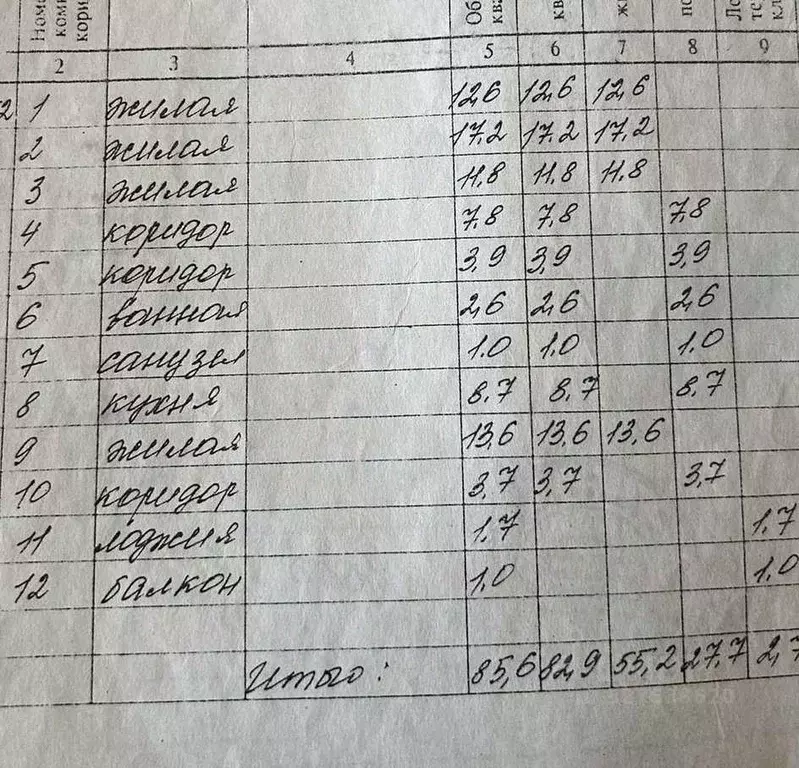 Номе
комн
кори
Об
ква
кв
жи
по
Ло
те
кл
2 3 4 5 6 7 8 9
2 1 жилая 12,6 12,6 12,6
2 жилая 17.2 17.2 17,2
3 жилая 11,8 11,8 11.8
4 коридор 7,8 7,8 7,8
5 коридор 3,9 3,9 3,9
6 ванная 2,6 2,6 2,6
7 санузел 1.0 1.0 1.0
8 кухня 8,7 8,7 8,7
9 жилая 13,6 13,6 13,6
10 коридор 3,7 3,7 3,7
11 лоджия 1,7 1,7
12 балкон 1,0 1,0
Итого: 85,6 82,9 55,2 27,7 2,7